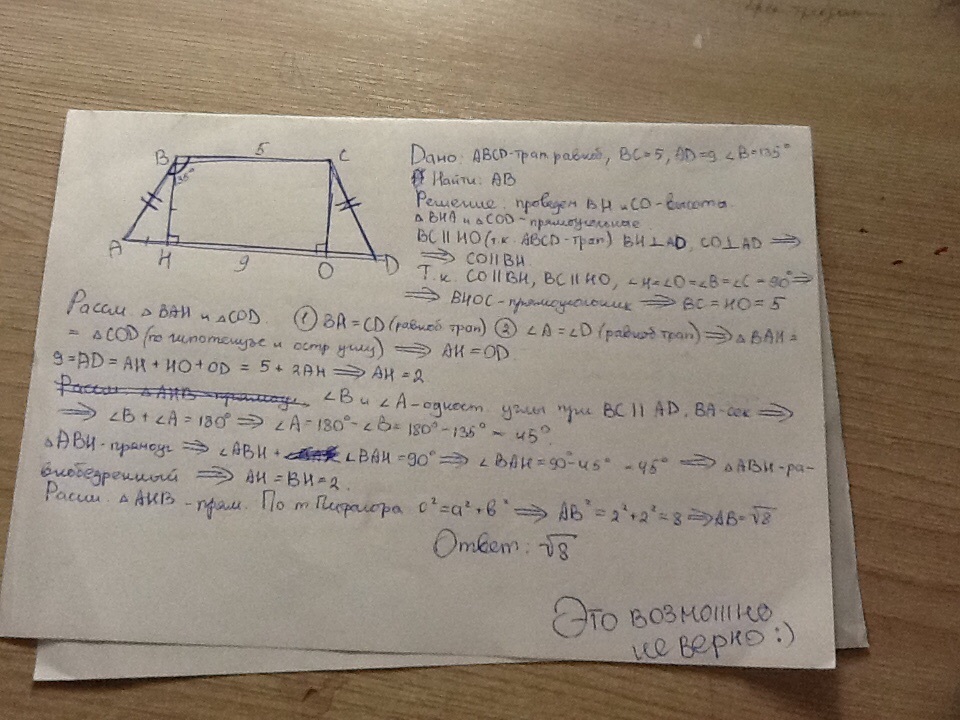 B 5 C
135°
A H 9 O D
Дано: ABCD-трап. равноб, BC=5, AD=9 ∠B=135°
Найти: AB
Решение: проведем BH и CO-высота.
△BHA и △COD-прямоугольные
BC || HO (т.к. ABCD-трап) BH⊥AD, CO⊥AD ⟹
⟹ CO||BH.
Т.к. CO||BH, BC||HO, ∠H=∠O=∠B=∠C=90° ⟹
⟹ BHOC-прямоугольник ⟹ BC=HO=5
Рассм. △BAH и △COD. ① BA=CD (равноб трап) ② ∠A=∠D (равноб трап) ⟹ △BAH=
= △COD (по гипотенузе и остр углу) ⟹ AH=OD.
9=AD=AH+HO+OD=5+2AH ⟹ AH=2
Рассм. △AHB-прямоуг. ∠B и ∠A-одност. углы при BC||AD, BA-сек ⟹
⟹ ∠B+∠A=180° ⟹ ∠A=180°-∠B=180°-135°=45°.
△ABH-прямоуг ⟹ ∠ABH+ ∠BAH=90° ⟹ ∠BAH=90°-45°=45° ⟹ △ABH-ра-
внобедренный ⟹ AH=BH=2.
Рассм. △AHB-прям. По т.Пифагора c²=a²+b² ⟹ AB²=2²+2²=8 ⟹ AB=√8
Ответ: √8
Это возможно
не верно :)